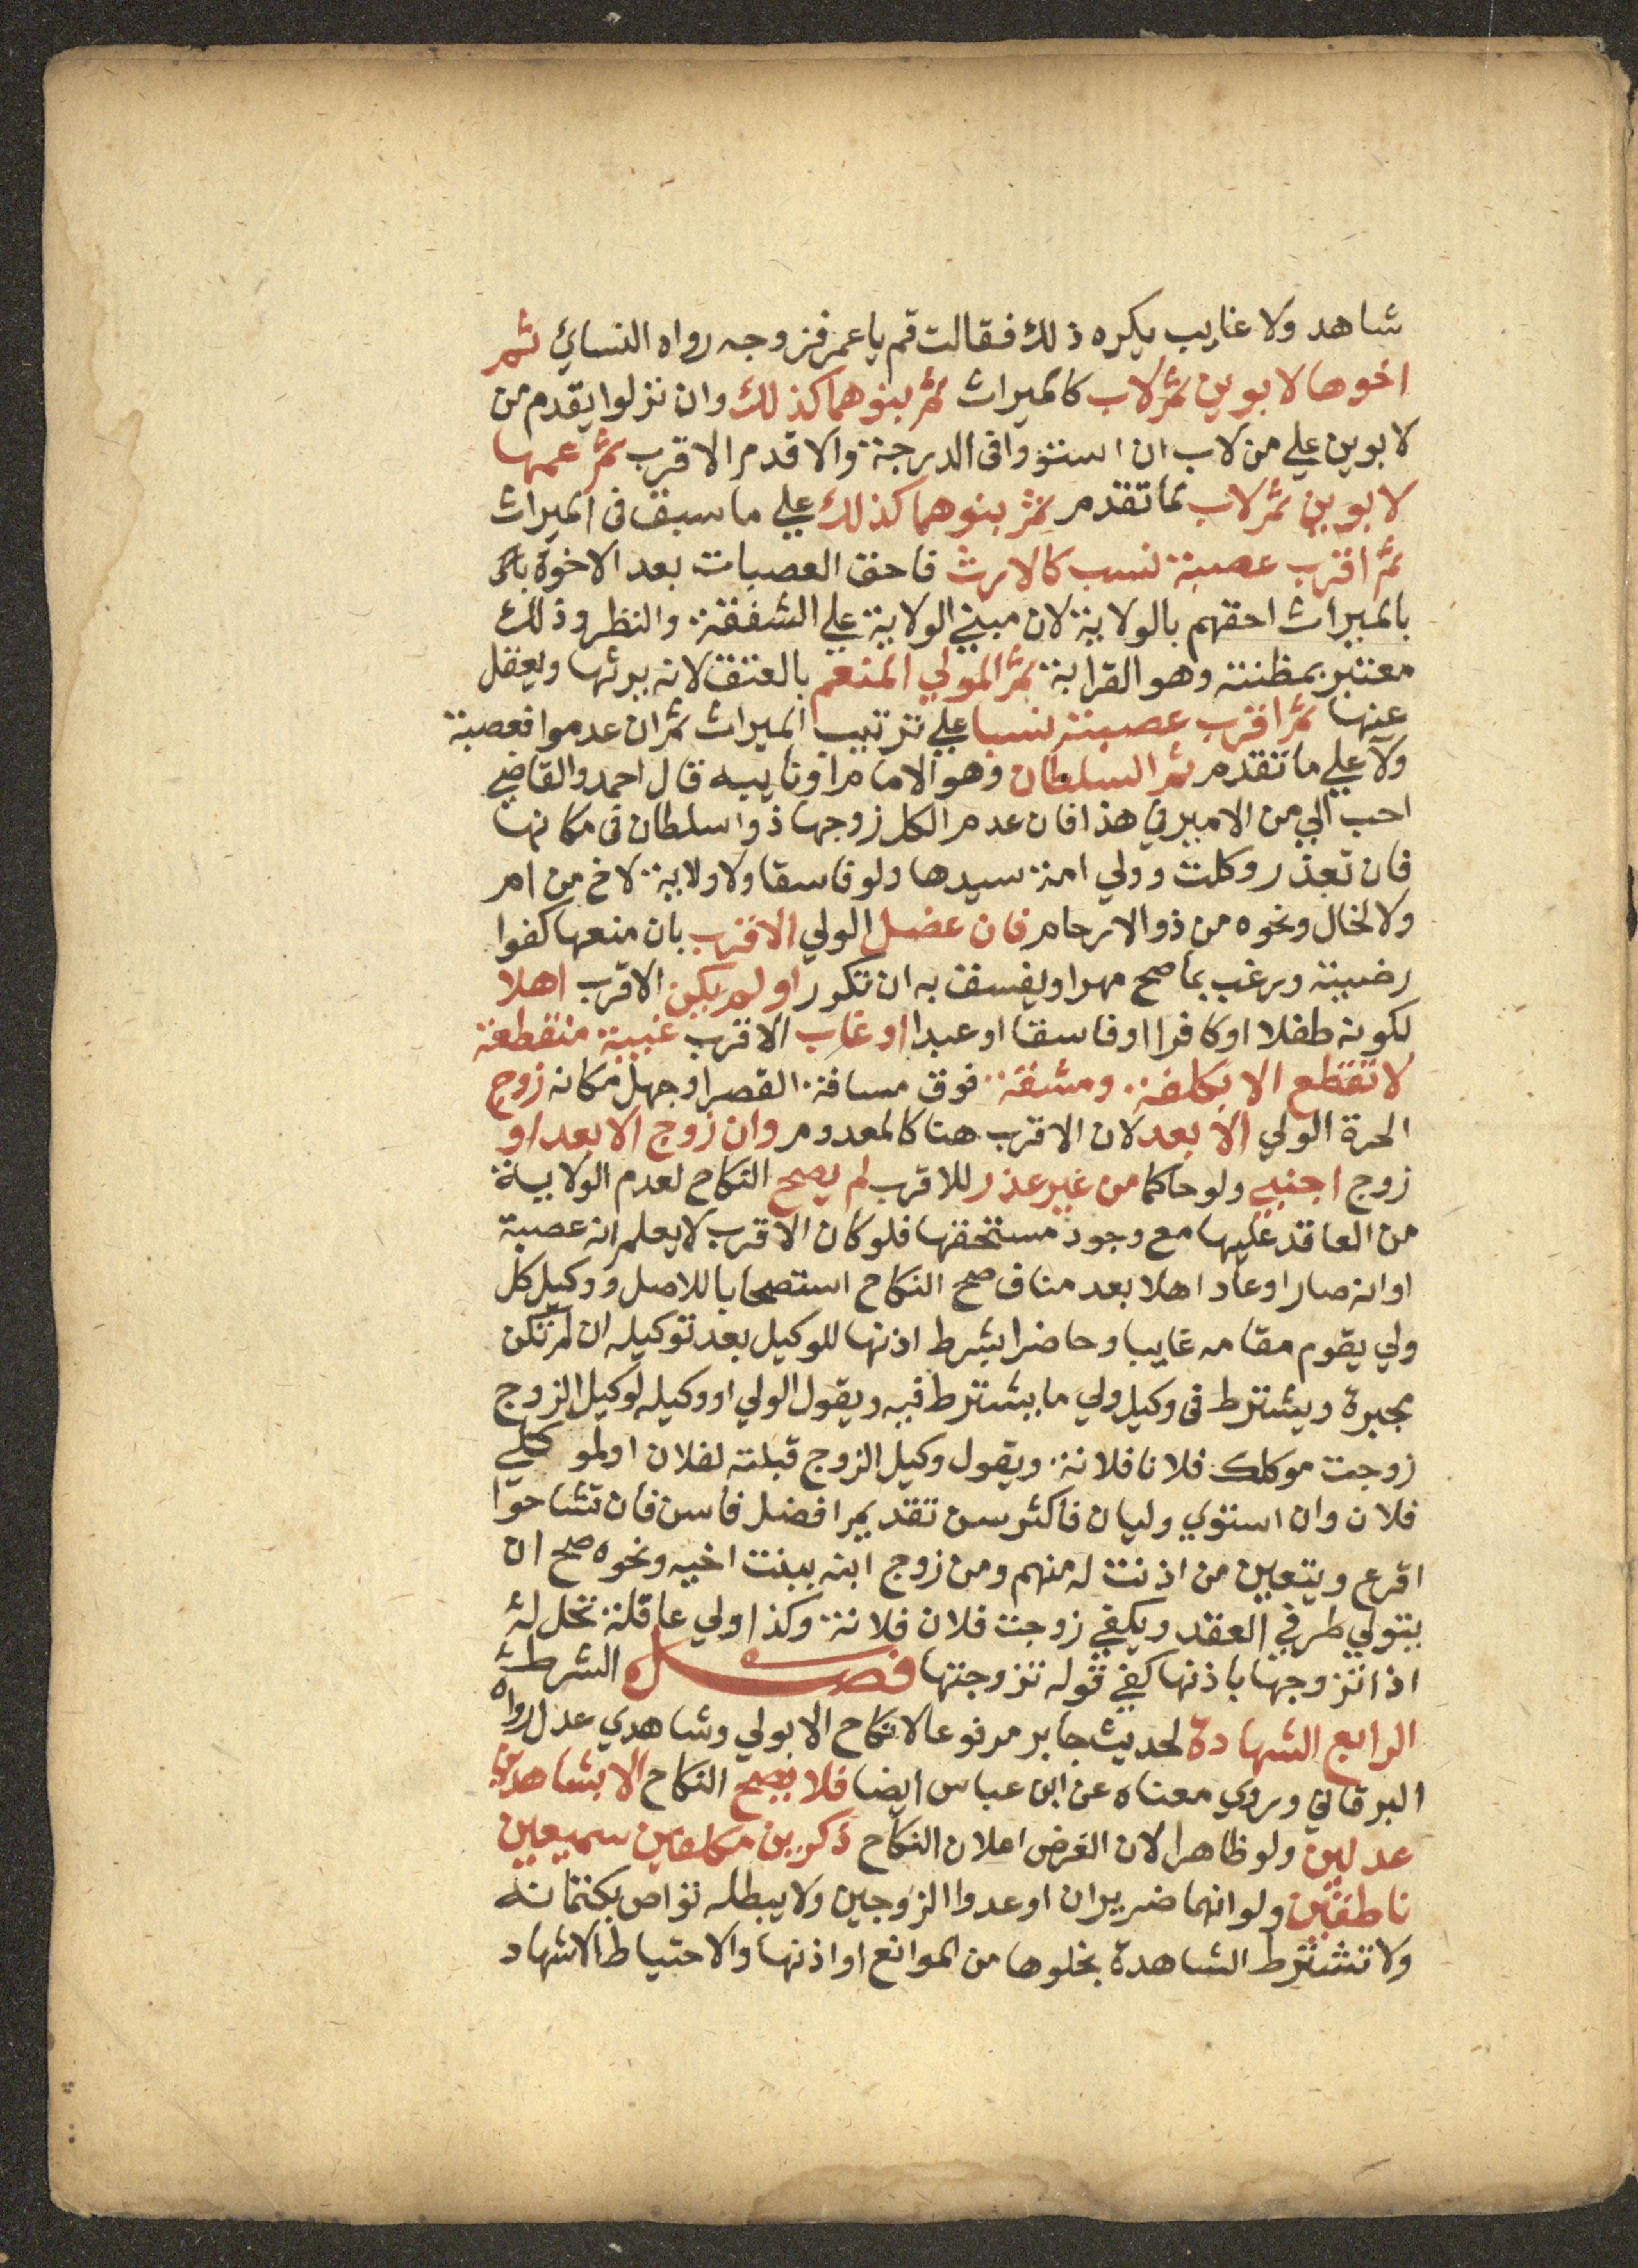 شاهد ولا غايب يكره ذلك فقالت قم يا عمر فزوجه رواه النسائي ثم
اخوها لابوين ثم لاب كالميراث ثم بنوهما كذلك وان نزلوا يقدم من
لابوين علي من لاب ان استووا في الدرجة والا قدم الاقرب ثم عمها
لابوين ثم لاب لما تقدم ثم بنوهما كذلك علي ما سبق في الميراث
ثم اقرب عصبة نسب كالارث فاحق العصبات بعد الاخوة
بالميراث احقهم بالولاية لان مبني الولاية علي الشفقة والنظر وذلك
معتبر بمظنته وهو القرابة ثم المولي المنعم بالعتق لانه يرثها ويعقل
عنها ثم اقرب عصبته نسبا علي ترتيب الميراث ثم ان عدموا فعصبة
ولا علي ما تقدم ثم السلطان وهو الامام او نايبه قال احمد والقاضي
احب الي من الامير في هذا فان عدم الكل زوجها ذو سلطان في مكانها
فان تعذر وكلت وولي امة سيدها ولو فاسقا ولا ولاية لاخ من ام
ولا لخال ونحوه من ذوالارحام فان عضل الولي الاقرب بان منعها كفوا
رضيته ورغب بما صح مهرا ويفسق به ان تكرر او لم يكن الاقرب اهلا
لكونه طفلا او كافرا او فاسقا او عبدا او غاب الاقرب غيبة منقطعة
لا تقطع الا بكلفة ومشقة فوق مسافة القصر او جهل مكانه زوج
الحرة الولي الابعد لان الاقرب هنا كالمعدوم وان زوج الابعد او
زوج اجنبي ولو حاكما من غير عذر للاقرب لم يصح النكاح لعدم الولاية
من العاقد عليها مع وجود مستحقها فلو كان الاقرب لا يعلم انه عصبة
او انه صار او عاد اهلا بعد مناف صح النكاح استصحابا للاصل ووكيل كل
ولي يقوم مقامه غايبا وحاضرا بشرط اذنها للوكيل بعد توكيله ان لم تكن
مجبرة ويشترط في وكيل ولي ما يشترط فيه ويقول الولي او وكيله لوكيل الزوج
زوجت موكلك فلانا فلانة ويقول وكيل الزوج قبلته لفلان او لموكلي
فلان وان استوي وليان فاكثر سن تقديم افضل فاسن فان تشاحوا
اقرع ويتعين من اذنت له منهم ومن زوج ابنه ببنت اخيه ونحوه صح ان
يتولي طرفي العقد ويكفي زوجت فلان فلانة وكذا ولي عاقلة تحل له
اذا تزوجها باذنها كفي قوله تزوجتها فصل الشرط
الرابع الشهادة لحديث جابر مرفوعا لا نكاح الا بولي وشاهدي عدل رواه
البرقاني وروي معناه عن ابن عباس ايضا فلا يصح النكاح الا بشاهدين
عدلين ولو ظاهرا لان الغرض اعلان النكاح ذكرين مكلفين سميعين
ناطقين ولو انهما ضريران او عدوا الزوجين ولا يبطله تواص بكتمانه
ولا تشترط الشاهدة بخلوها من الموانع او اذنها والاحتياط الاشهاد